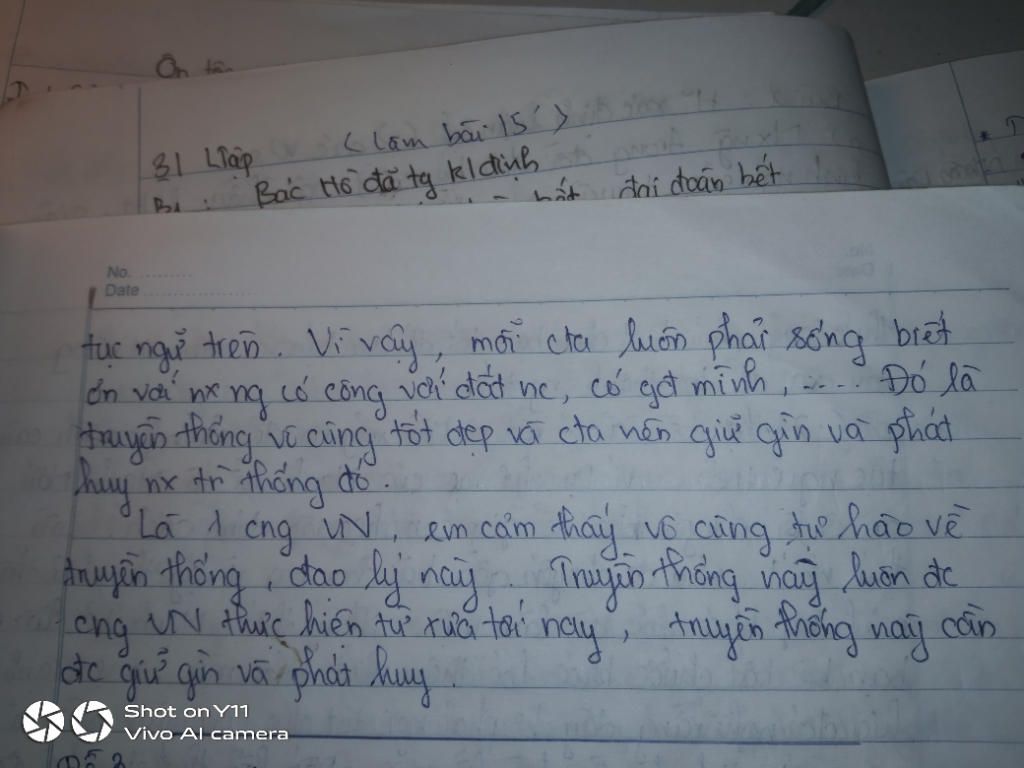 Ôn tập
3) LTập (làm bài 15')
B1: Bác Hồ đã tg kđ định
đại đoàn kết
No.
Date
tục ngữ trên. Vì vậy, mỗi cta luôn phải sống biết
ơn với nx ng có công với đất nc, có gđ mình, .... Đó là
truyền thống vô cùng tốt đẹp và cta nên giữ gìn và phát
huy nx tr thống đó.
Là 1 cng VN, em cảm thấy vô cùng tự hào về
truyền thống, đạo lý này. Truyền thống này luôn đc
cng VN thực hiện từ xưa tới nay, truyền thống này cần
đc giữ gìn và phát huy.
Shot on Y11
Vivo AI camera